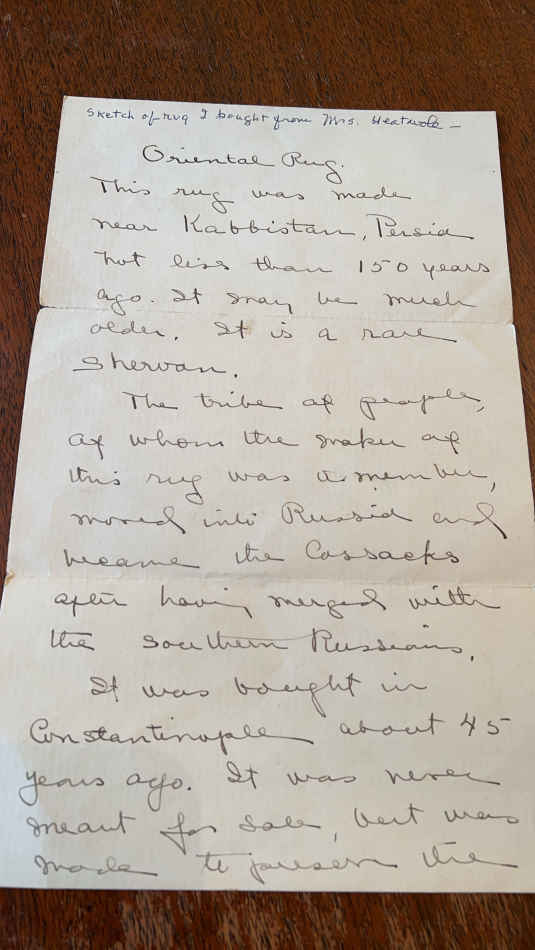 Sketch of rug I bought from Mrs. Heatwole —
Oriental Rug.
This rug was made
near Kabbistan, Persia
not less than 150 years
ago. It may be much
older. It is a rare
Shervan.
The tribe of people,
of whom the maker of
this rug was a member,
moved into Russia and
became the Cossacks
after having merged with
the Southern Russians.
It was bought in
Constantinople about 45
years ago. It was never
meant for sale, but was
made to preserve the